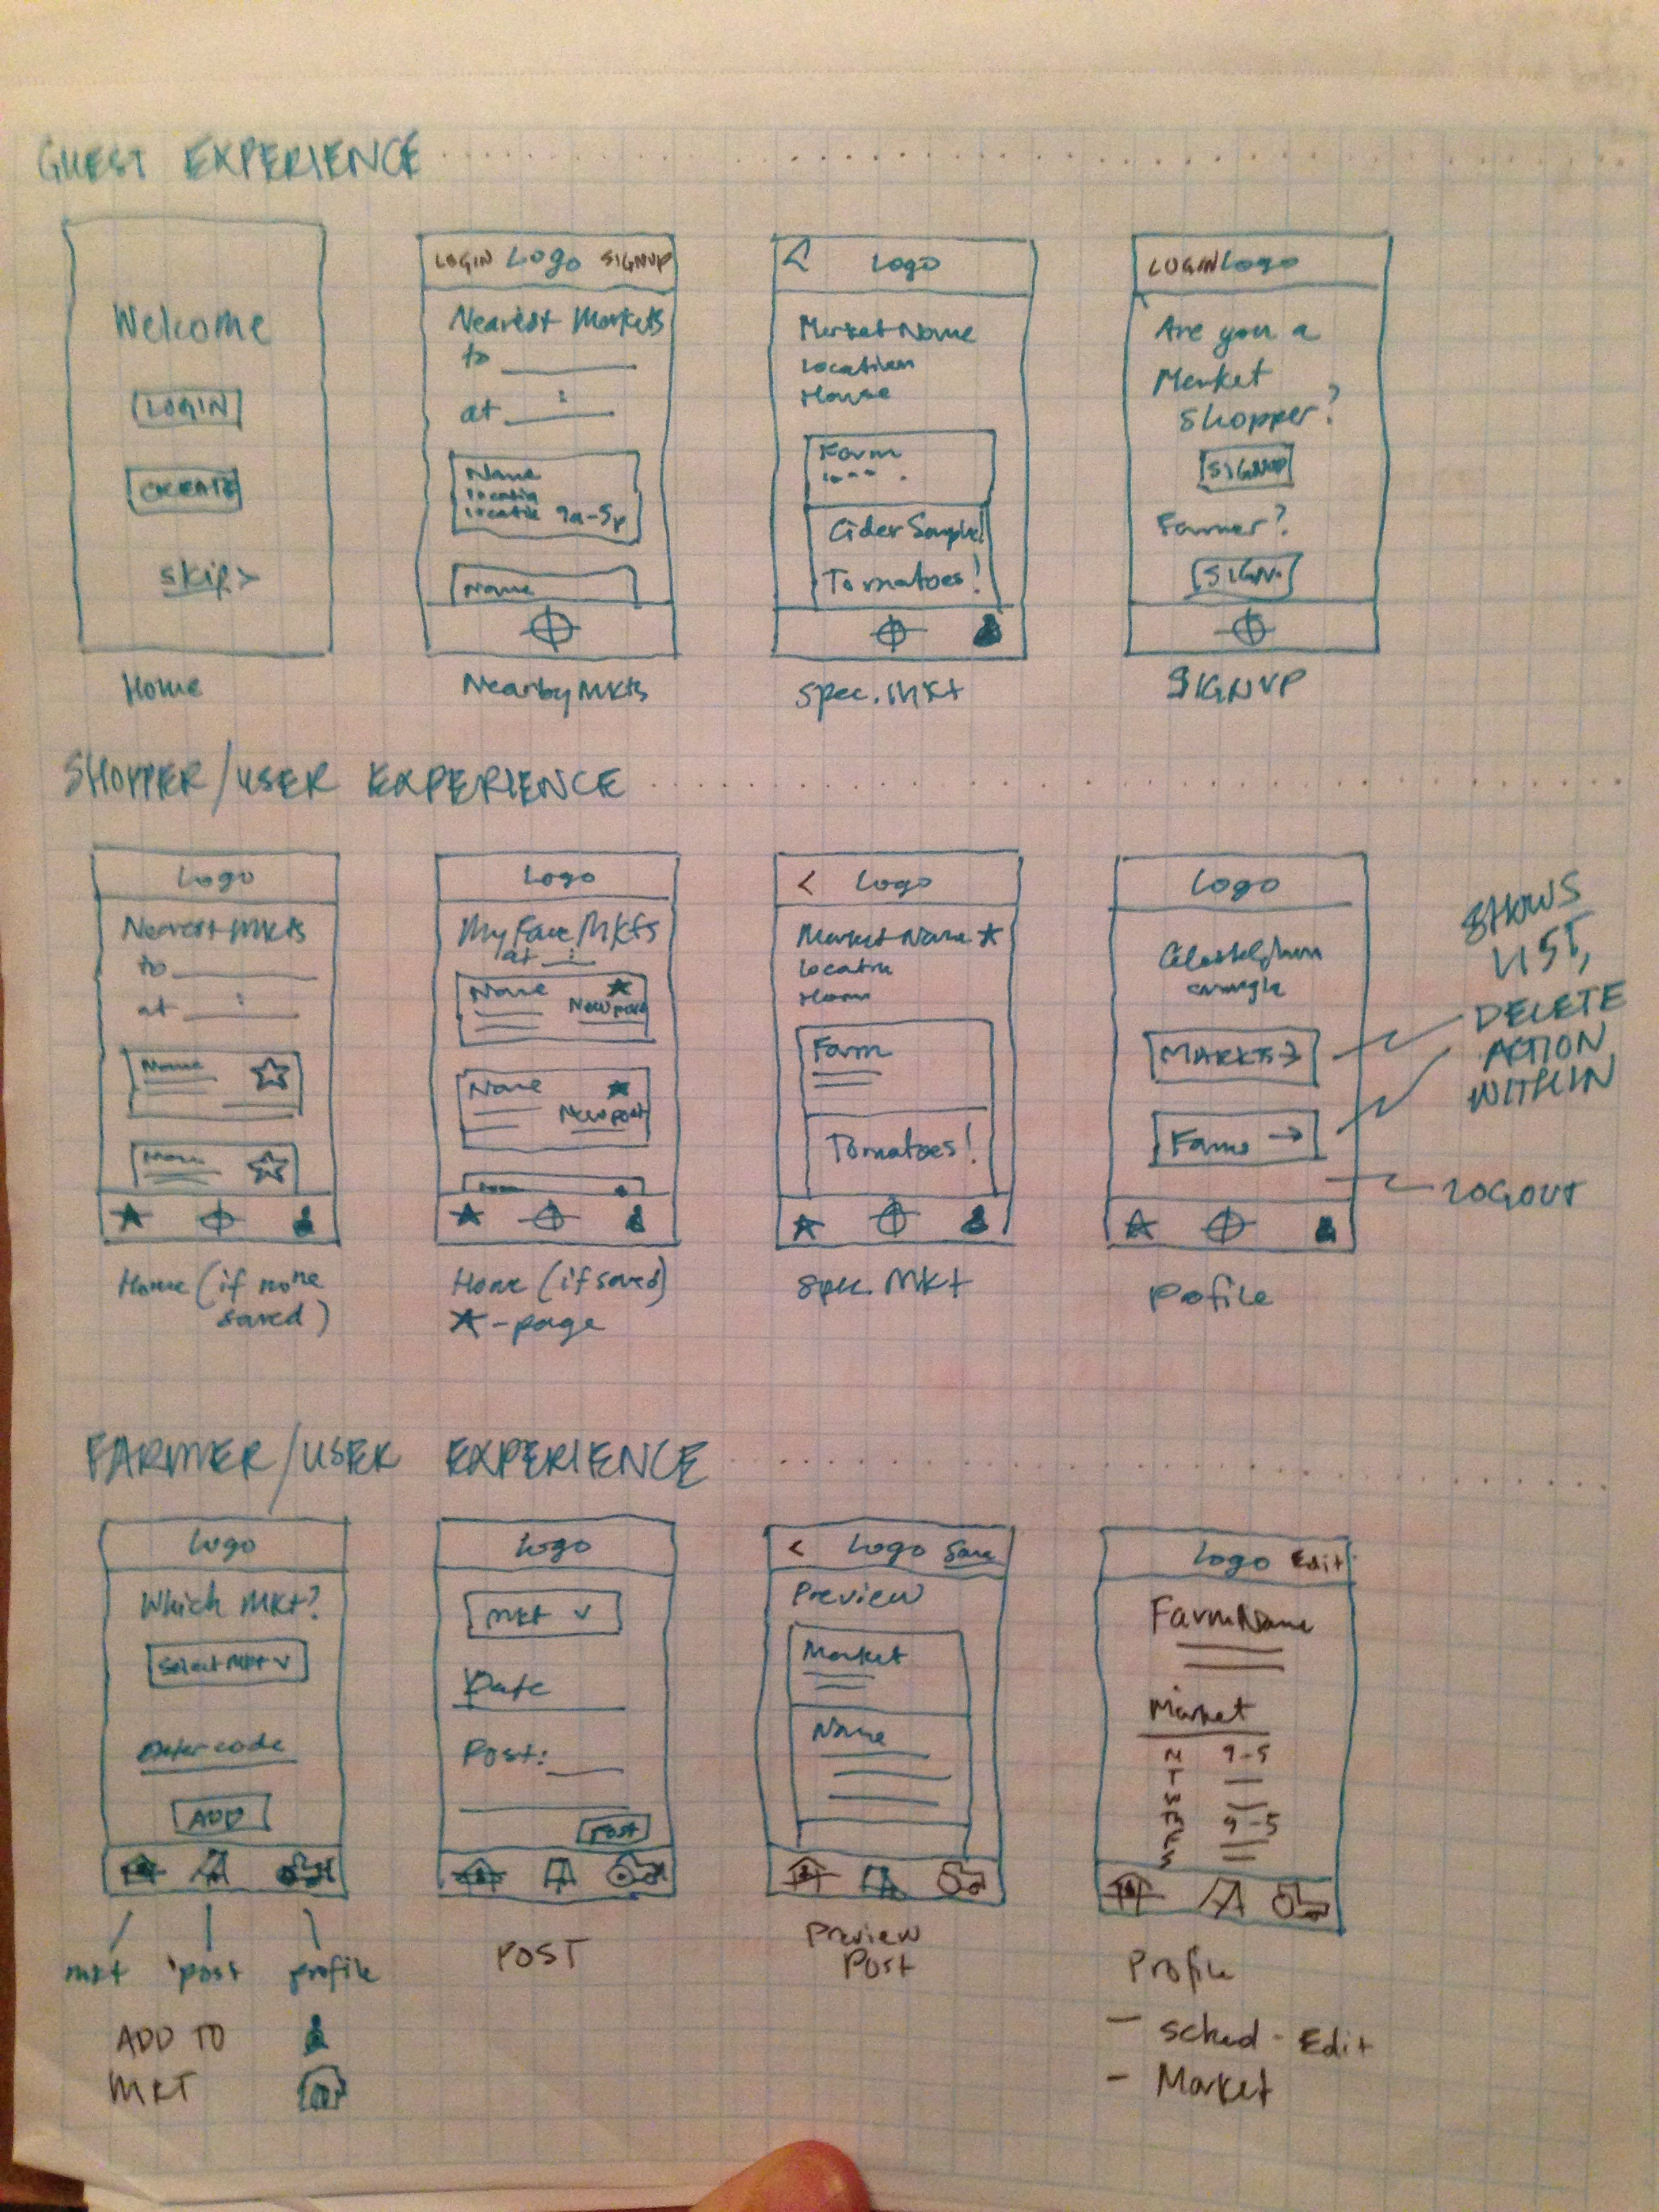 GUEST EXPERIENCE
Welcome
LOGIN
CREATE
skip>
Home
LOGIN Logo SIGNUP
Nearest Markets
to
at :
Name
Locatin
9a-5p
Name
Nearby Mkts
< Logo
Market Name
Location
Farm
Cider Sample!
Tomatoes!
Spec. Mkt
LOGIN Logo
Are you a
Market
Shopper?
SIGNUP
Farmer?
SIGN
SIGNUP
SHOPPER/USER EXPERIENCE
Logo
Nearest Mkts
to
at :
Name
Home (if none
saved)
Logo
My Fave Mkts
at :
Name
New post
Name
New post
Home (if saved)
★-page
< Logo
Market Name ★
Farm
Tomatoes!
Spec. Mkt
Logo
MARKTS →
Farms →
Pofile
SHOWS
LIST,
DELETE
ACTION
WITHIN
LOGOUT
FARMER/USER EXPERIENCE
Logo
Which Mkt?
Select Mkt v
Enter code
ADD
mkt post profile
ADD TO
MKT
Logo
Mkt v
Date
Post:
POST
POST
< Logo Save
Preview
Market
Name
Preview
Post
Logo Edit
Farm Name
Market
M 9-5
T —
W —
Th 9-5
F —
S —
Profile
— sched - Edit
— Market